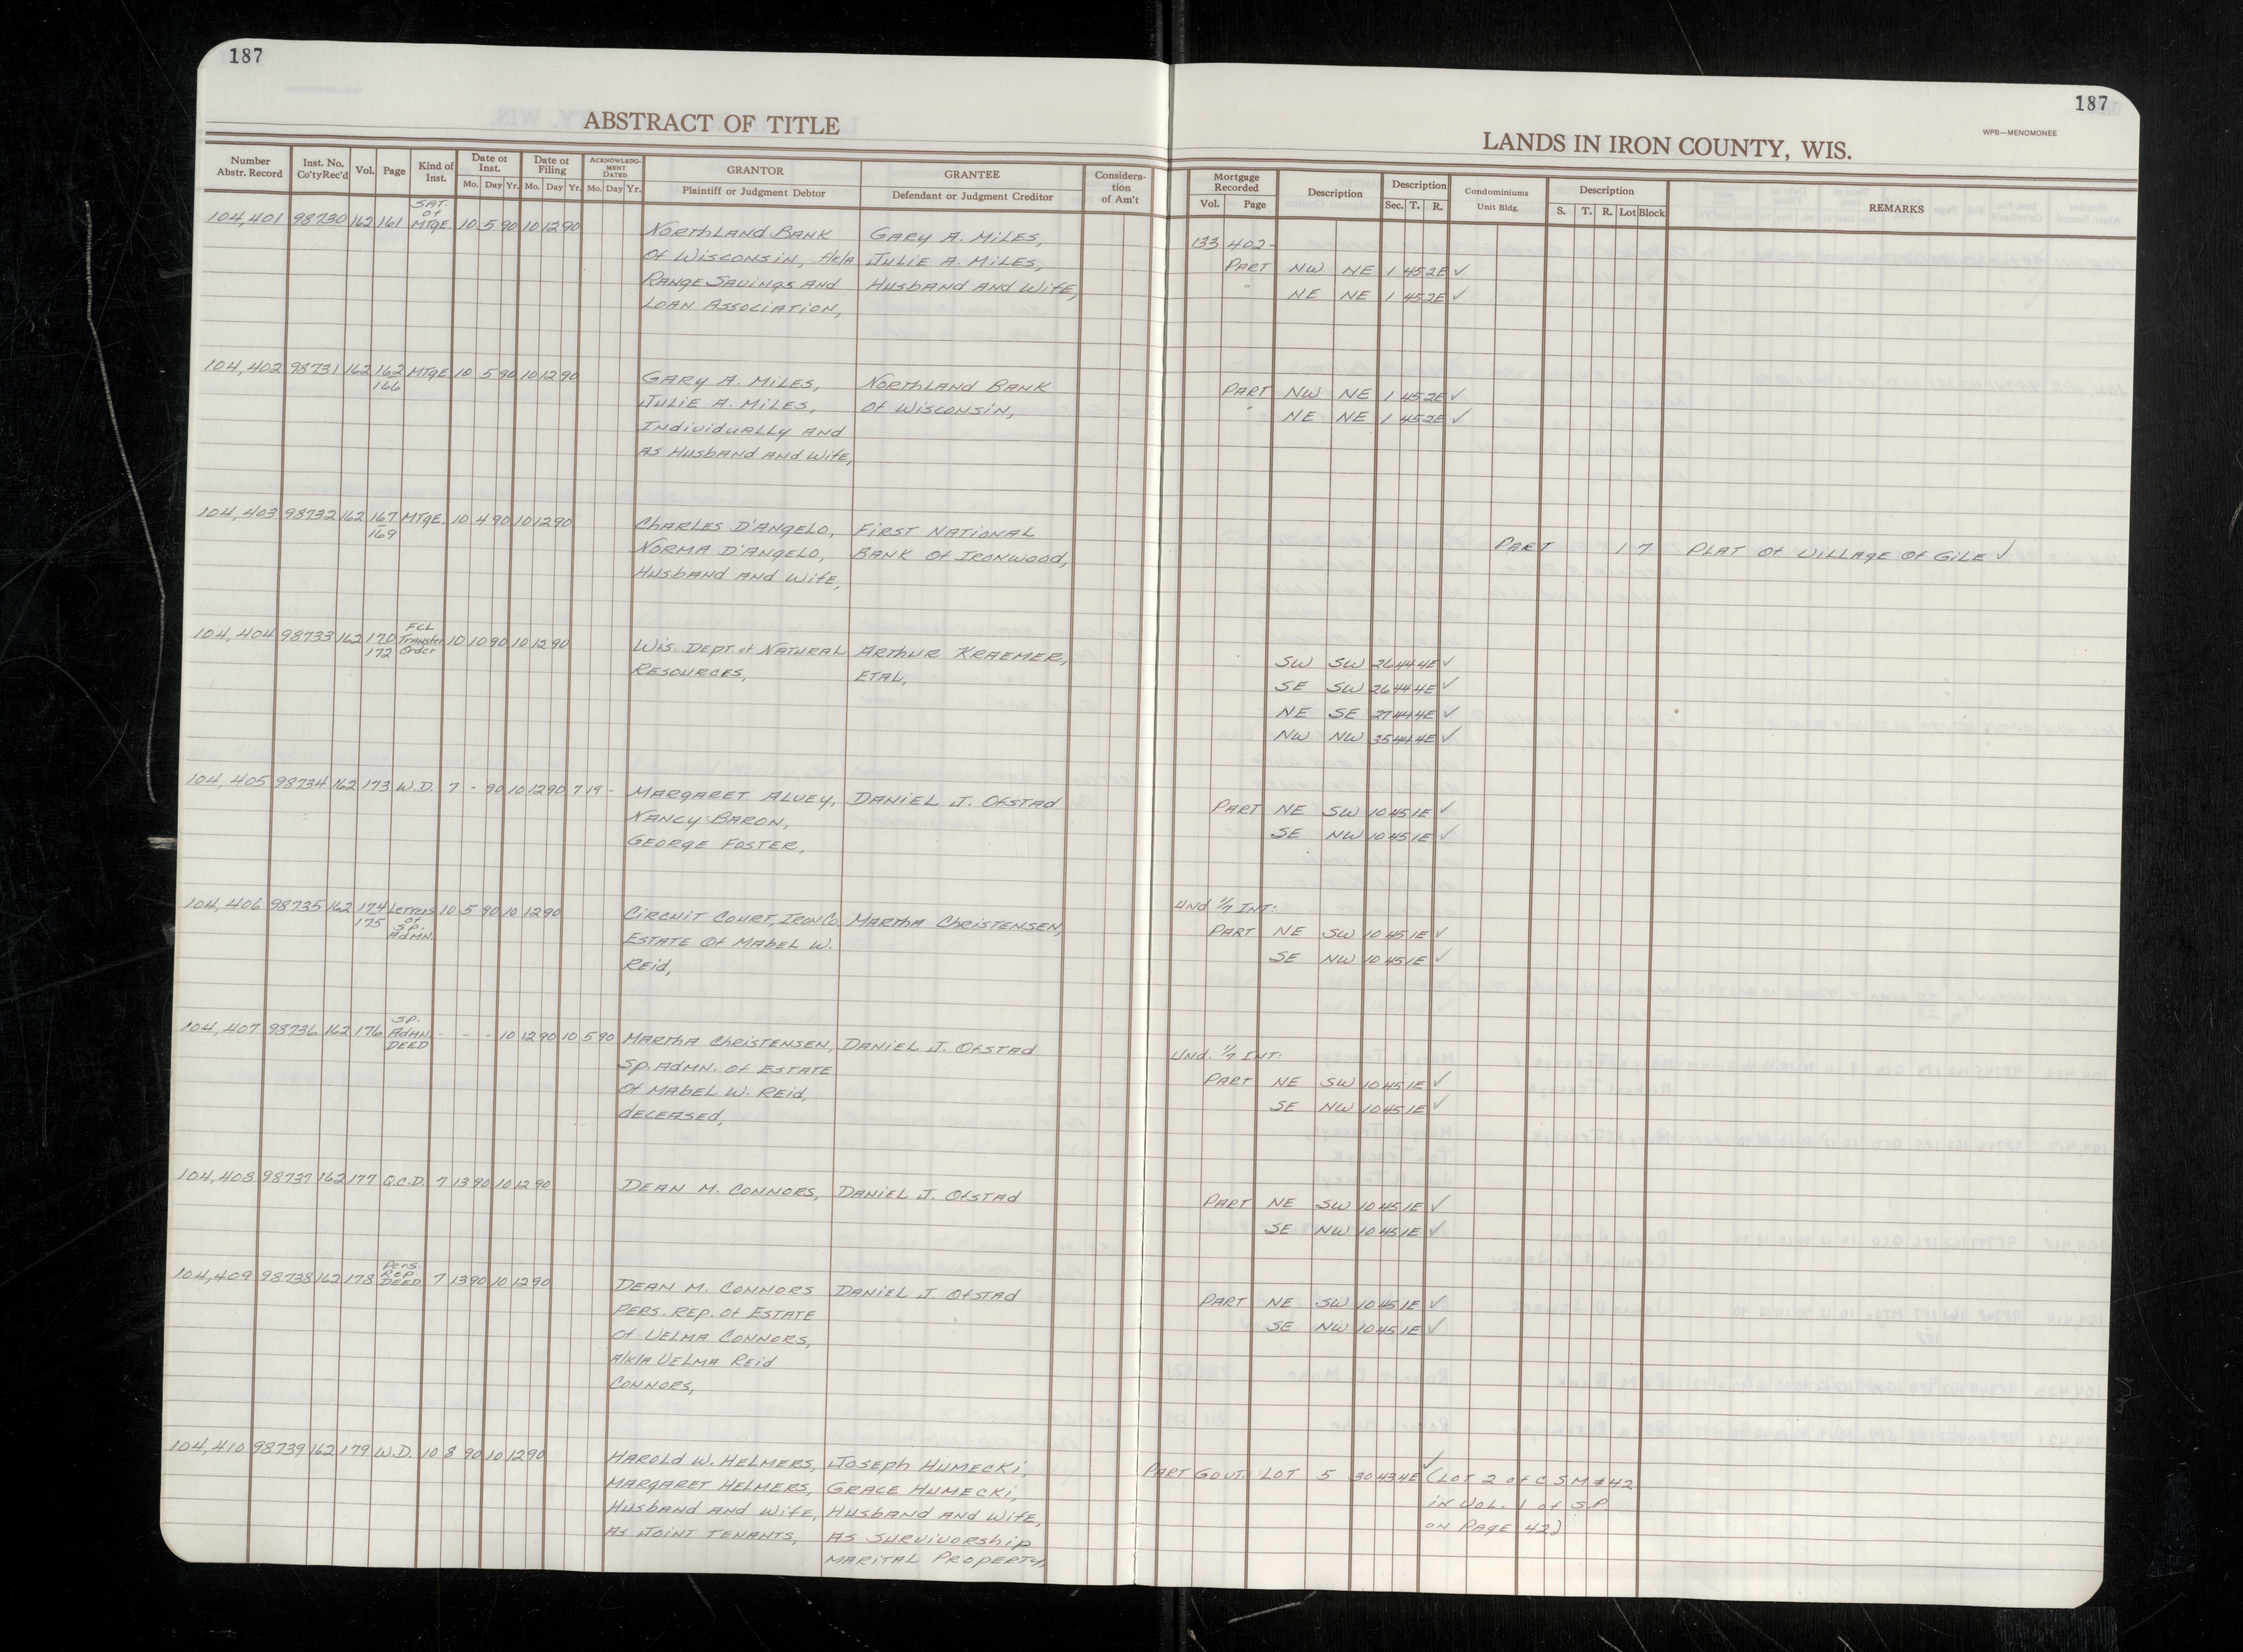 187
187
ABSTRACT OF TITLE
LANDS IN IRON COUNTY, WIS.
WPB—MENOMONEE
Number Abstr. Record | Inst. No. Co'ty Rec'd | Vol. | Page | Kind of Inst. | Date of Inst. Mo. Day Yr. | Date of Filing Mo. Day Yr. | ACKNOWLEDGMENT DATED Mo. Day Yr. | GRANTOR Plaintiff or Judgment Debtor | GRANTEE Defendant or Judgment Creditor | Consideration of Am't | Mortgage Recorded Vol. Page | Description | Description Sec. T. R. | Condominiums Unit Bldg. | Description S. T. R. Lot Block | REMARKS
104,401 98730 162 161 SAT. of MTGE. 10 5 90 10 12 90
NORTHLAND BANK GARY A. MILES, 133 402-
Of WISCONSIN, f/k/a JULIE A. MILES, PART NW NE 1 45 2E ✓
RANGE SAVINGS AND HUSBAND AND WIFE, " NE NE 1 45 2E ✓
LOAN ASSOCIATION,
104,402 98731 162 162 166 MTGE 10 5 90 10 12 90
GARY A. MILES, NORTHLAND BANK PART NW NE 1 45 2E ✓
JULIE A. MILES, Of WISCONSIN, " NE NE 1 45 2E ✓
INDIVIDUALLY AND
AS HUSBAND AND WIFE,
104,403 98732 162 167-169 MTGE. 10 4 90 10 12 90
CHARLES D'ANGELO, FIRST NATIONAL
NORMA D'ANGELO, BANK Of IRONWOOD, PART 1 7 PLAT Of VILLAGE Of GILE ✓
HUSBAND AND WIFE,
104,404 98733 162 170 172 FCL Transfer Order 10 10 90 10 12 90
WIS. DEPT. of NATURAL ARTHUR KRAEMER, SW SW 26 44 4E ✓
RESOURCES, ETAL, SE SW 26 44 4E ✓
NE SE 27 44 4E ✓
NW NW 35 44 4E ✓
104,405 98734 162 173 W.D. 7 - 90 10 12 90 7 19 -
MARGARET ALVEY, DANIEL J. OFSTAD PART NE SW 10 45 1E ✓
NANCY BARON, SE NW 10 45 1E ✓
GEORGE FOSTER,
104,406 98735 162 174 175 Letters of Sp. Admn. 10 5 90 10 12 90
UND 1/7 INT:
CIRCUIT COURT, IRON CO. MARTHA CHRISTENSEN, PART NE SW 10 45 1E ✓
ESTATE Of MABEL W. SE NW 10 45 1E ✓
REID,
104,407 98736 162 176 SP. ADMN. DEED - - - 10 12 90 10 5 90
MARTHA CHRISTENSEN, DANIEL J. OFSTAD UND. 1/7 INT:
SP. ADMN. Of ESTATE PART NE SW 10 45 1E ✓
Of MABEL W. REID, SE NW 10 45 1E ✓
DECEASED,
104,408 98737 162 177 Q.C.D. 7 13 90 10 12 90
DEAN M. CONNORS, DANIEL J. OFSTAD PART NE SW 10 45 1E ✓
SE NW 10 45 1E ✓
104,409 98738 162 178 Pers. Rep. DEED. 7 13 90 10 12 90
DEAN M. CONNORS DANIEL J. OFSTAD PART NE SW 10 45 1E ✓
PERS. REP. Of ESTATE SE NW 10 45 1E ✓
Of VELMA CONNORS,
A/K/A VELMA REID
CONNORS,
104,410 98739 162 179 W.D. 10 8 90 10 12 90
HAROLD W. HELMERS, JOSEPH HUMECKI, PART GOVT. LOT 5 30 43 4E ✓ (LOT 2 of C S M #42
MARGARET HELMERS, GRACE HUMECKI, in VOL. 1 of S.P
HUSBAND AND WIFE, HUSBAND AND WIFE, ON PAGE 42)
AS JOINT TENANTS, AS SURVIVORSHIP
MARITAL PROPERTY,